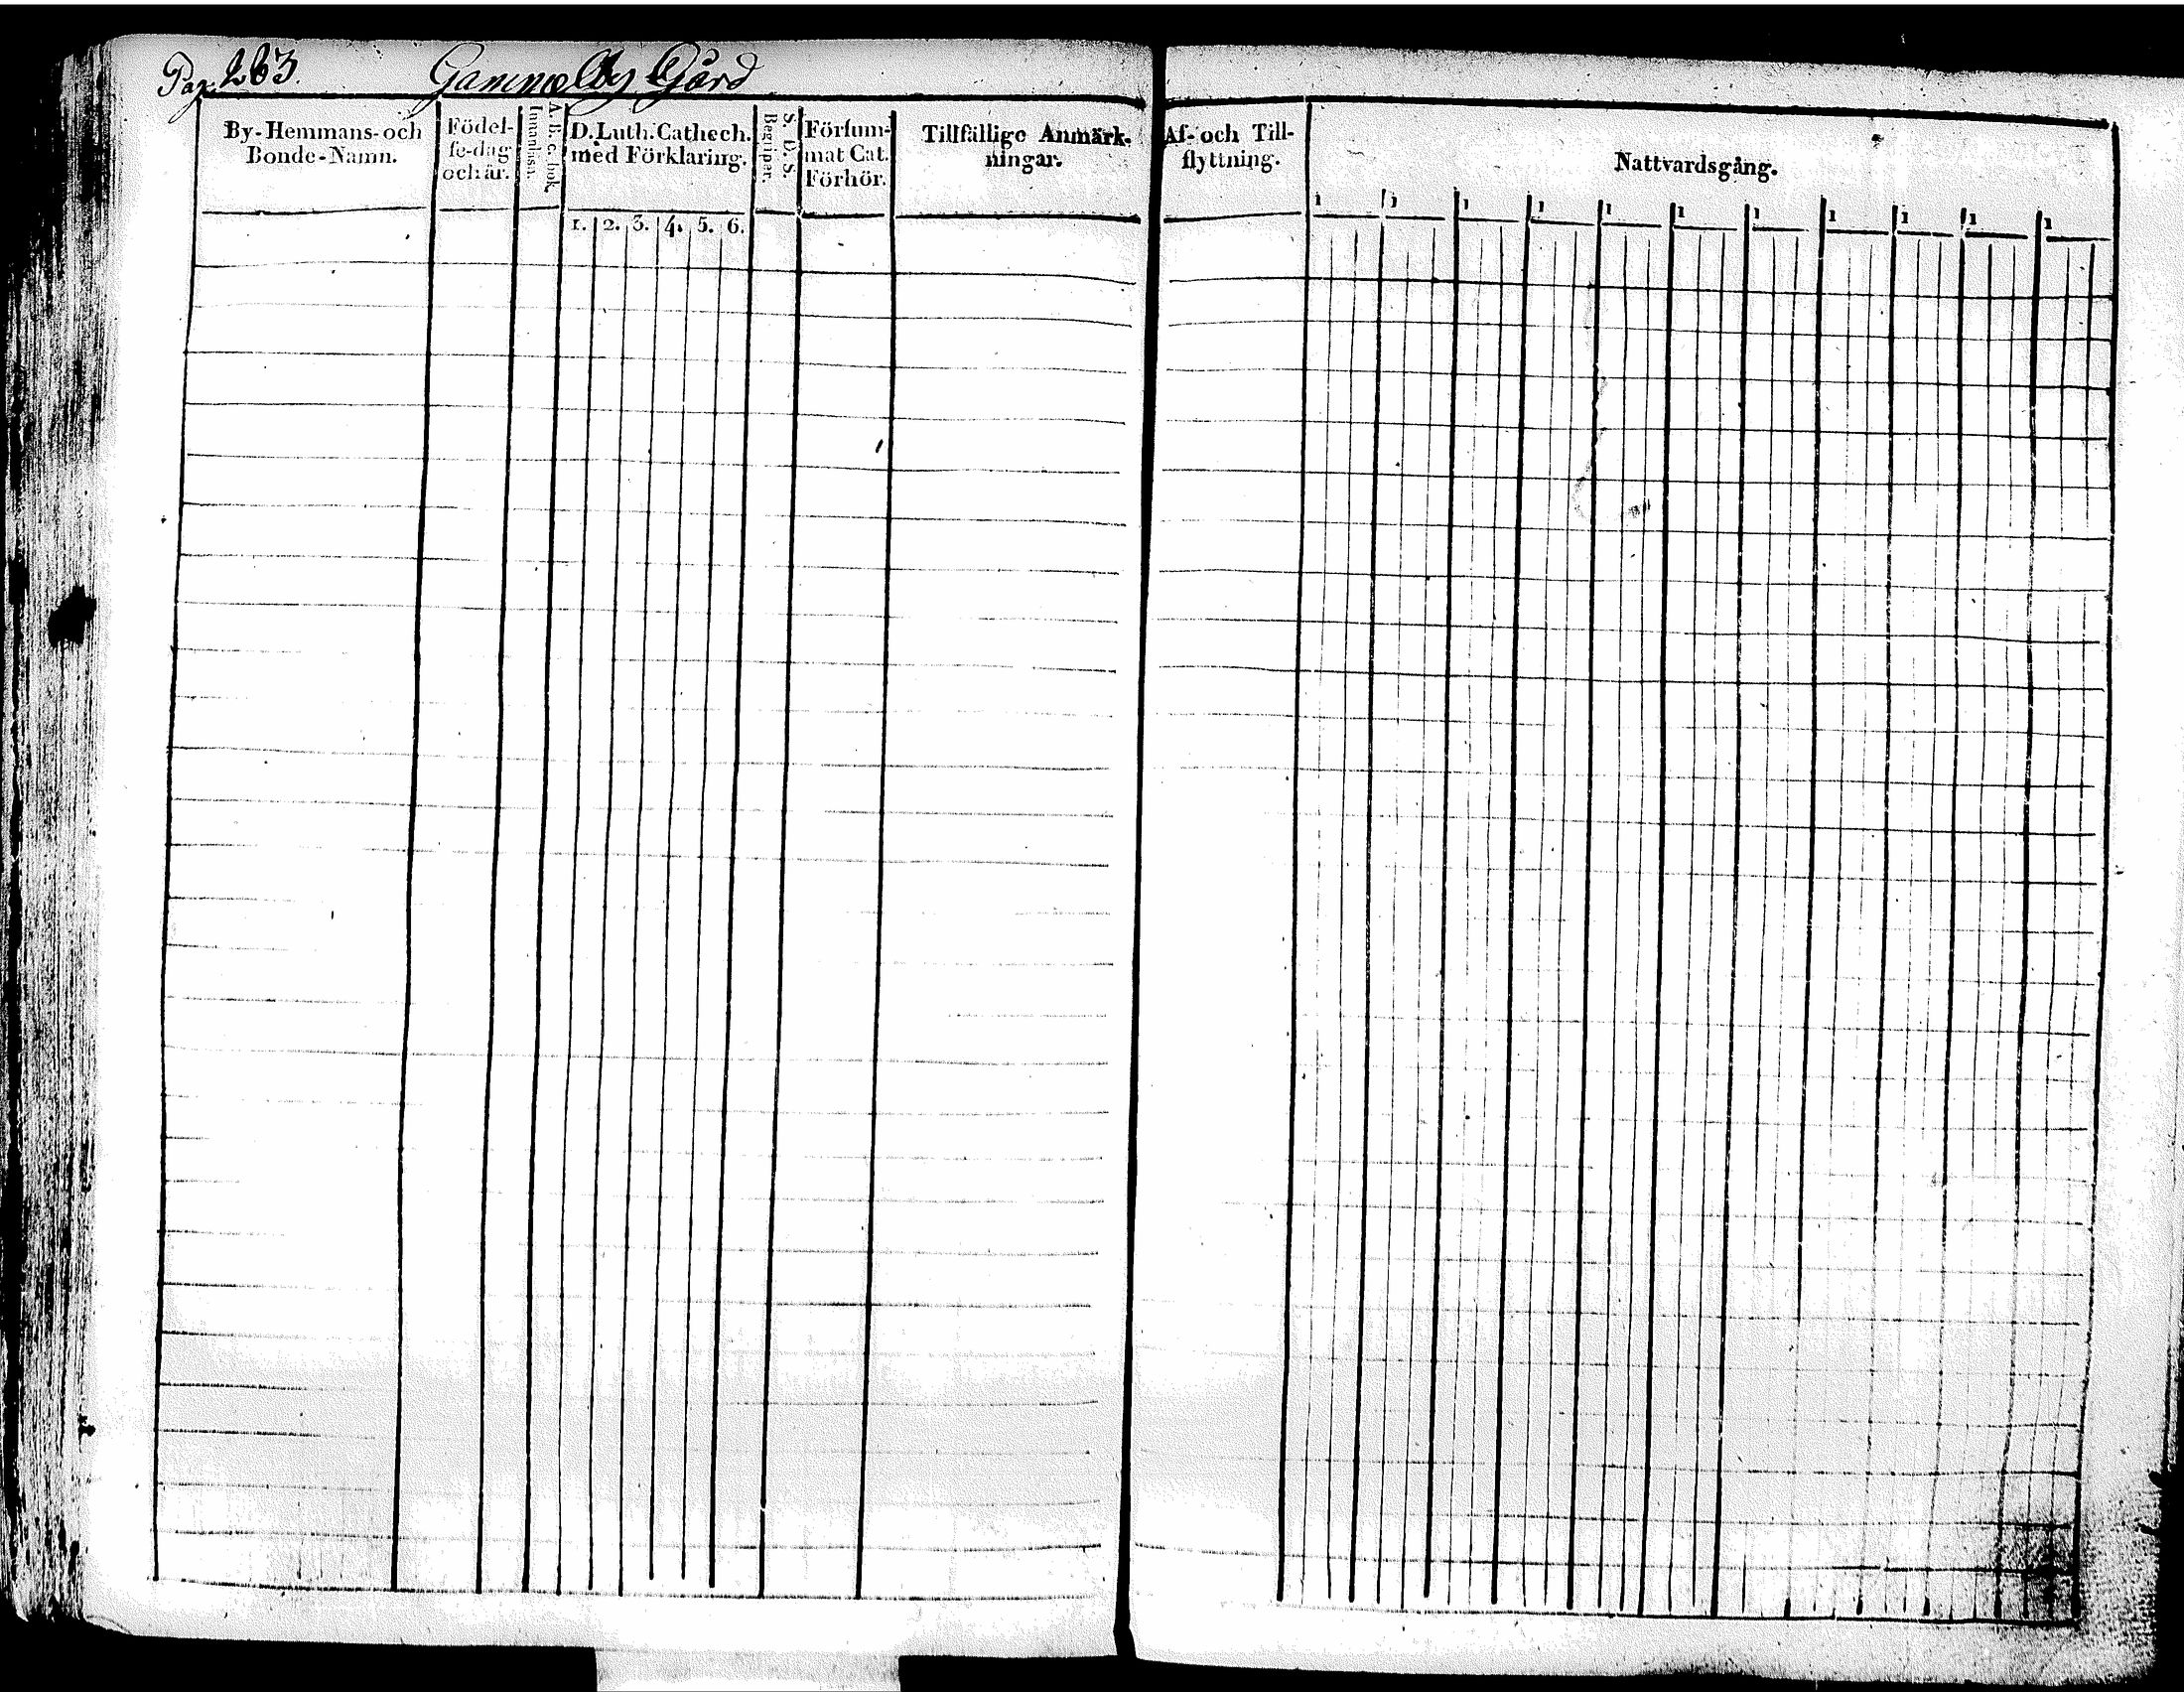 Pag. 263. Gammelby Gård
By-Hemmans- och
Bonde-Namn.
Födel-
se-dag
och år.
A. B. c. bok
Innanläsn.
D. Luth. Cathech.
med Förklaring.
1. 2. 3. 4. 5. 6.
S. D. S.
Begripar.
Försum-
mat Cat.
Förhör.
Tillfällige Anmärk-
ningar.
Af- och Till-
flyttning.
Nattvardsgång.
1 1 1 1 1 1 1 1 1 1 1